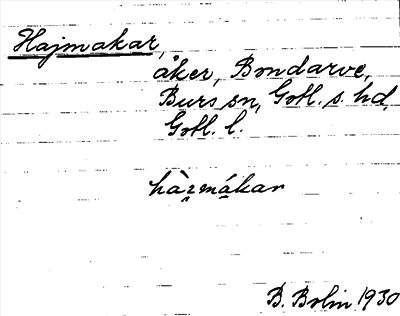 Hajmakar,
åker, Bondarve,
Burs sn, Gotl. s. hd,
Gotl. l.
hàꞮmákar
B. Bolin 1930